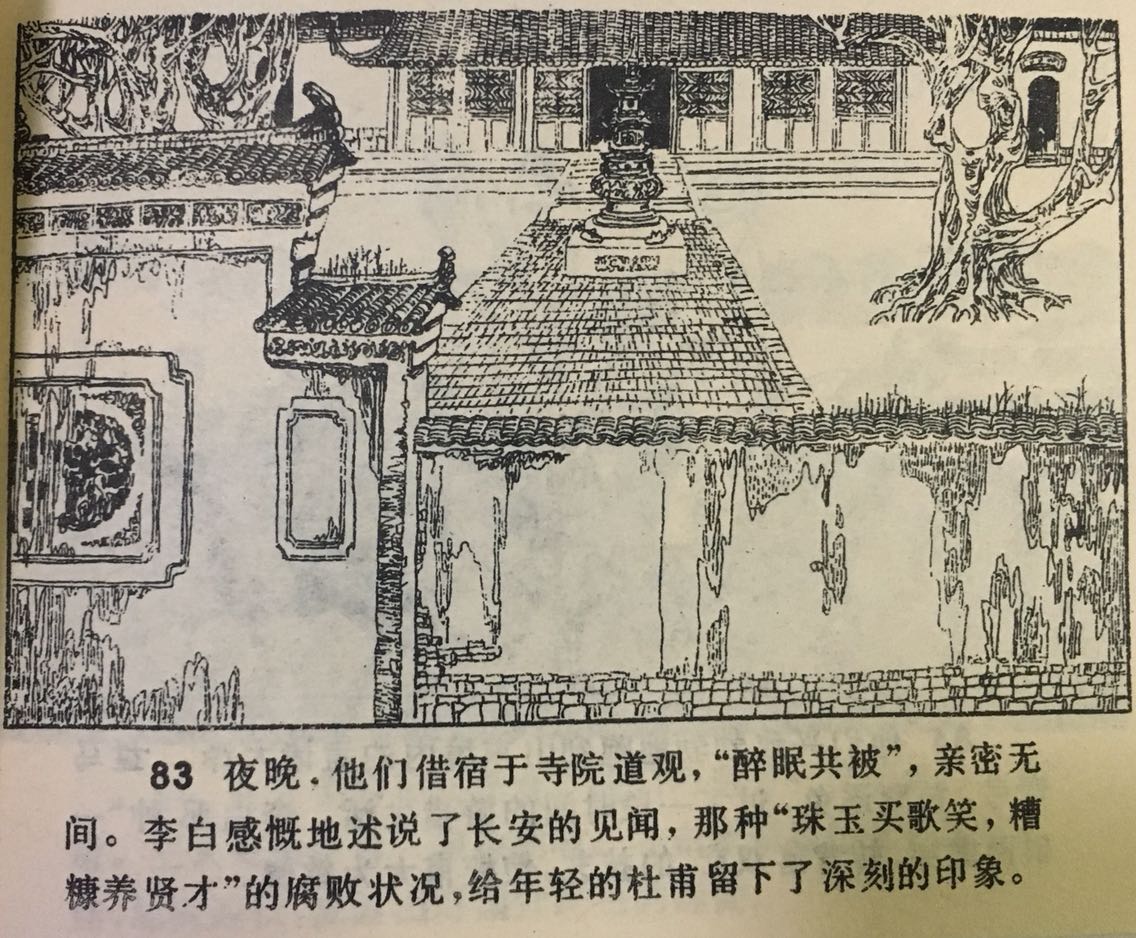 83 夜晚．他们借宿于寺院道观，“醉眠共被”，亲密无
间。李白感慨地述说了长安的见闻，那种“珠玉买歌笑，糟
糠养贤才”的腐败状况，给年轻的杜甫留下了深刻的印象。